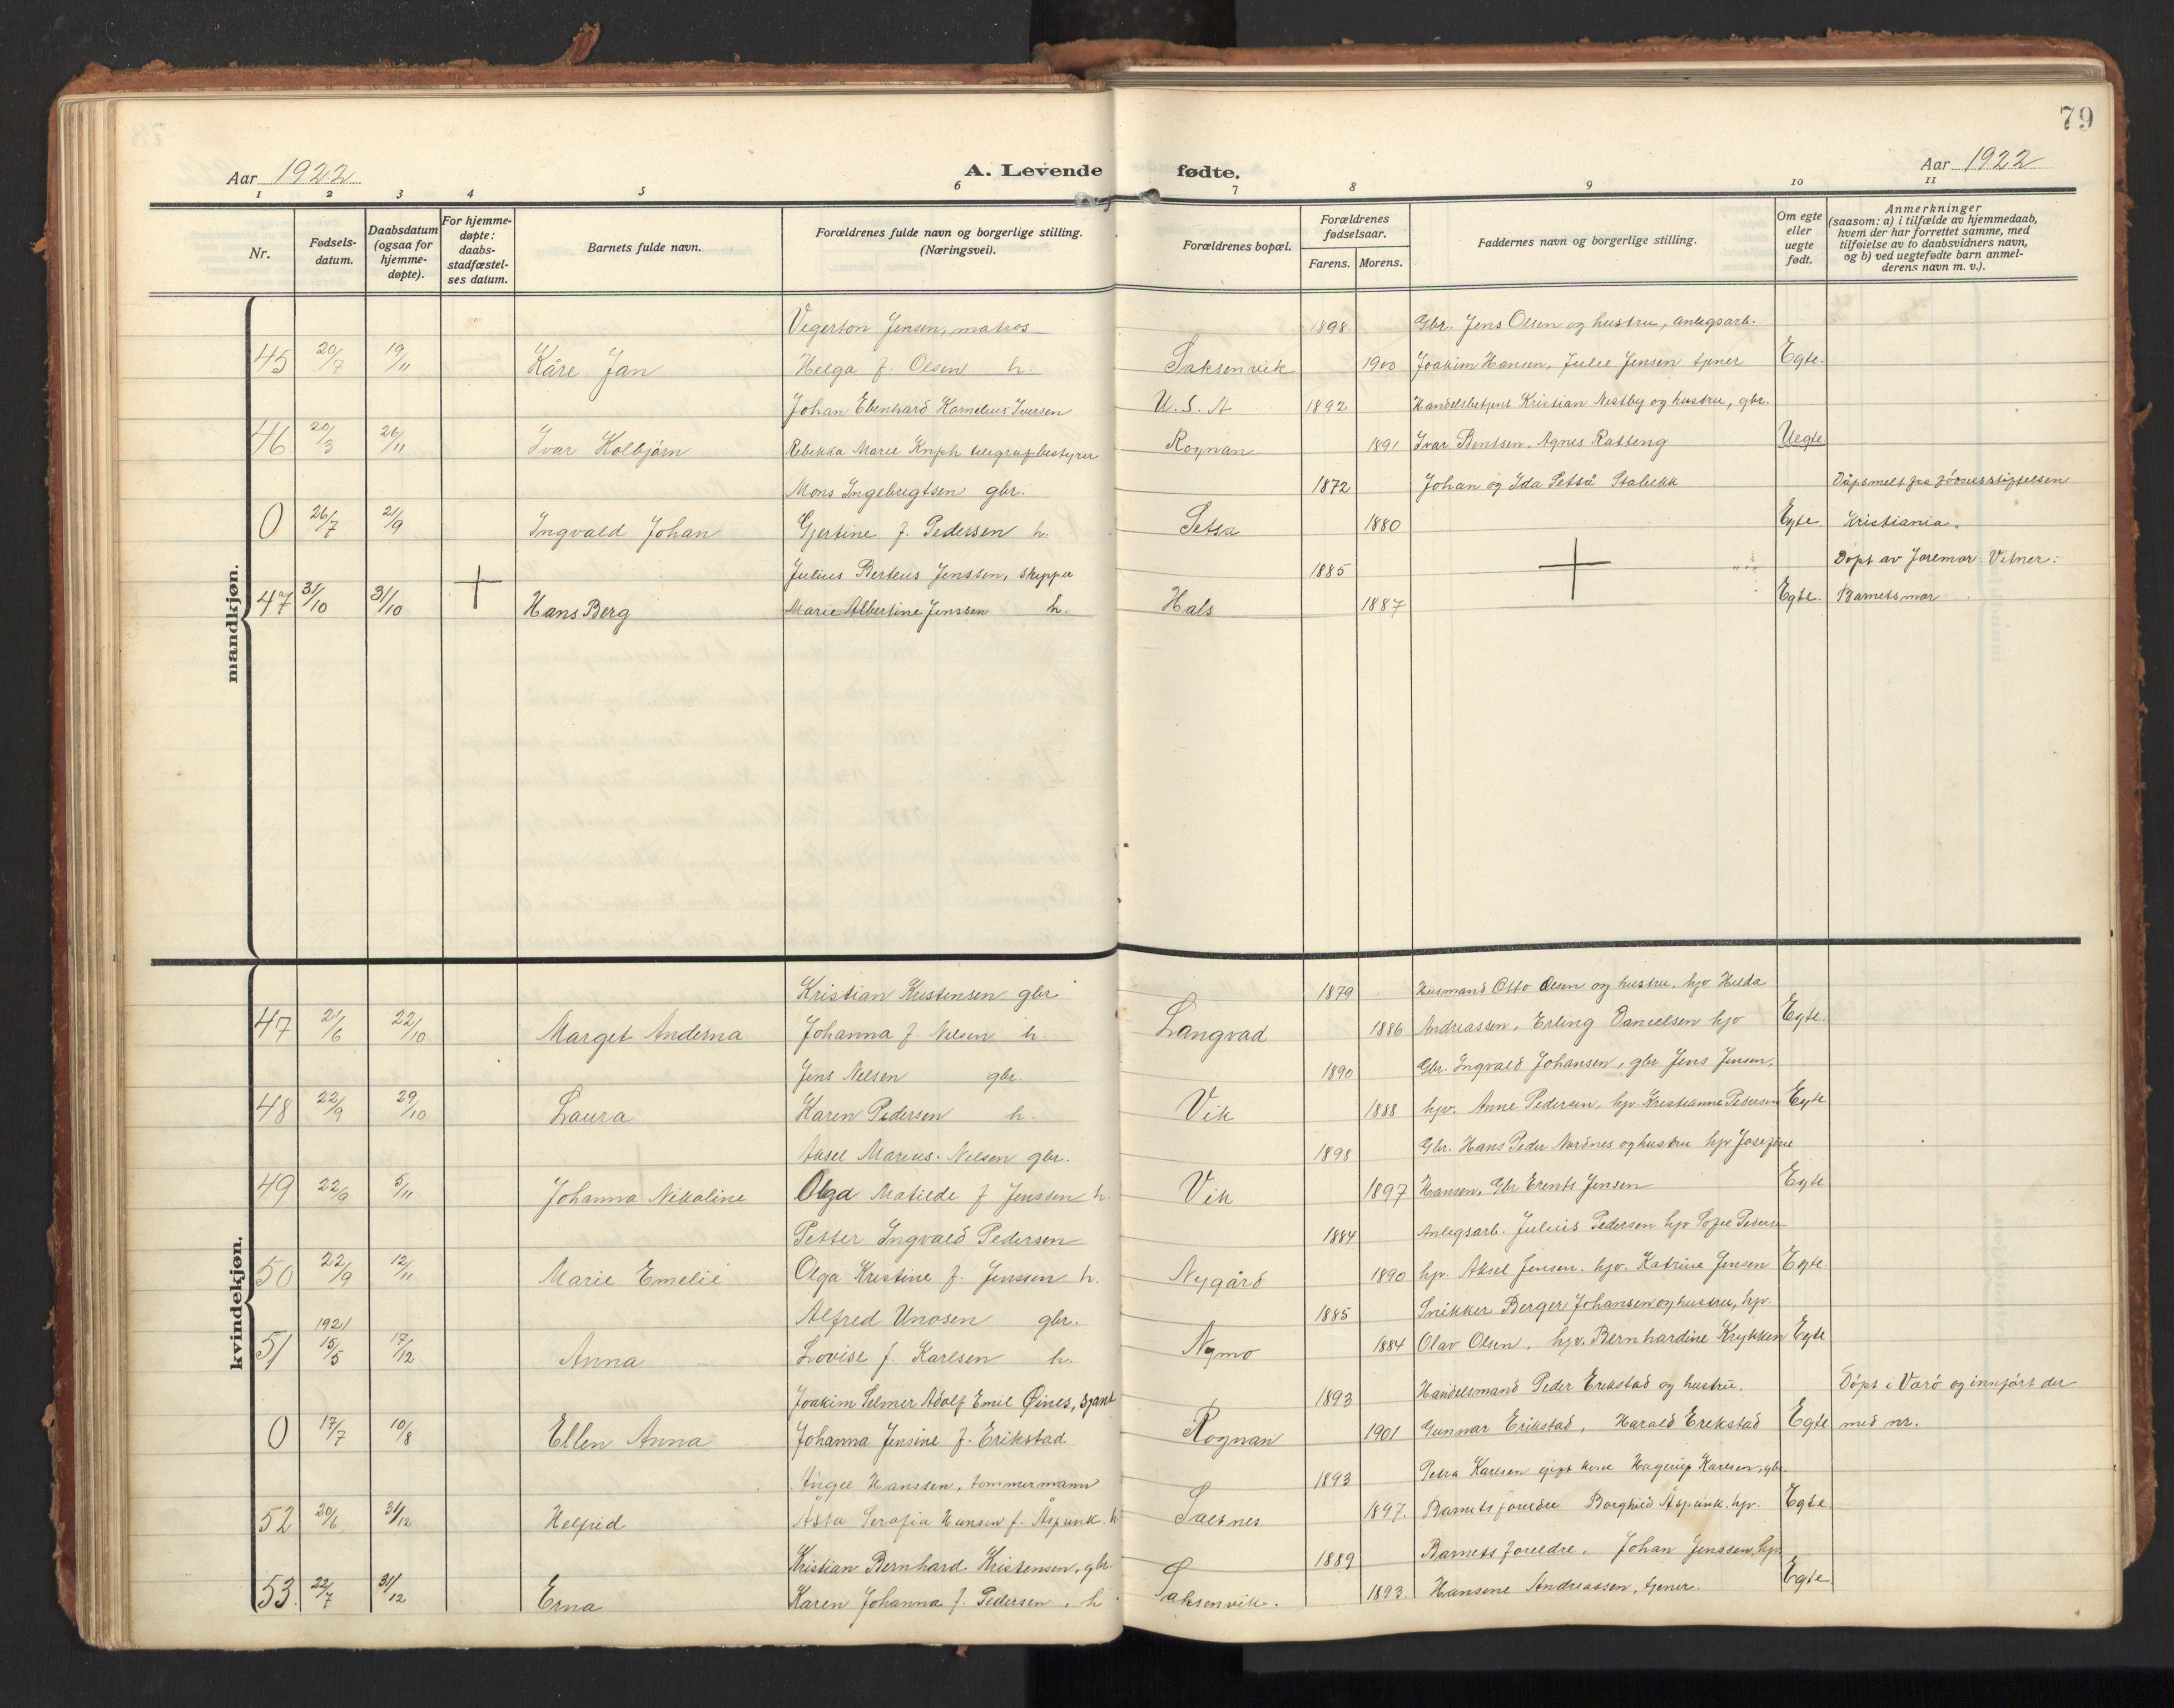 79
Aar 1922
A. Levende fødte.
Aar 1922
1 2 3 4 5 6 7 8 9 10 11
Nr.
Fødsels-
datum.
Daabsdatum
(ogsaa for
hjemme-
døpte).
For hjemme-
døpte:
daabs-
stadfæstel-
ses datum.
Barnets fulde navn.
Forældrenes fulde navn og borgerlige stilling.
(Næringsvei).
Forældrenes bopæl.
Forældrenes
fødselsaar.
Farens. Morens.
Faddernes navn og borgerlige stilling.
Om egte
eller
uegte
født.
Anmerkninger
(saasom: a) i tilfælde av hjemmedaab,
hvem der har forrettet samme, med
tilføielse av to daabsvidners navn,
og b) ved uegtefødte barn anmel-
derens navn m. v.).
mandkjøn.
Vegerton Jensen, matros 1898 Gbr. Jens Olsen og hustru, anlegsarb.
45 20/7 19/11 Kåre Jan Helga f. Olsen h. Saksenvik 1900 Joakim Hansen, Julie Jensen tjener Egte.
Johan Ebenhard Kornelius Iversen U.S.A 1892 Handelsbetjent Kristian Nestby og hustru, gbr.
46 20/3 26/11 Ivar Kolbjørn Rebekka Marie Knph telegrafbestyrer Rognan 1891 Ivar Bentsen, Agnes Ratting Uegte
Mons Ingebrigtsen gbr. 1872 Johan og Ida Setså Dåpsmelt fra
0 26/7 2/9 Ingvald Johan Gjertine f. Pedersen h. Setså 1880 Egte Kristiania.
Julius Berteus Jenssen, skipper 1885 Døpt av Joremor. Vitner:
47 31/10 31/10 Hans Berg Marie Albertine Jenssen h. Hals 1887 Egte. Barnets mor
kvindekjøn.
Kristian Kristensen gbr 1879 Husmand Otto Olsen og hustru, hjv Hilda
47 2/6 22/10 Marget Anderna Johanna f. Nilsen h. Langvad 1886 Andreassen, Erling Danielsen hjv Egte.
Jens Nilsen gbr. 1890 Gbr. Ingvald Johansen, gbr Jens Jensen,
48 22/9 29/10 Laura Karen Pedersen h. Vik 1888 hjv. Anne Pedersen, hjv. Kristianne Pedersen Egte
Aksel Marius Nilsen gbr. 1898 Gbr. Hans Peder Nordnes og hustru hjv Josefine
49 22/9 5/11 Johanna Nikoline Olga Matilde f Jenssen h Vik 1897 Hansen, Gbr Erents Jensen Egte
Petter Ingvald Pedersen 1884 Anlegsarb. Julius Pedersen hjv Sofie Peders
50 22/9 12/11 Marie Emelie Olga Kristine f. Jenssen h. Nygård 1890 hjv. Aksel Jensen. hjv. Katrine Jensen Egte.
1921 Alfred Unosen gbr. 1885 Snikker Berger Johansen og hustru, hjv.
51 15/5 17/12 Anna Lovise f. Karlsen h. Nymo 1884 Olav Olsen, hjv. Bernhardine Krykken Egte
Joakim Selmer Adolf Emil Øines, 1893 Handelsmand Peder Erikstad og hustru. Døpt i Værö og innført der
0 17/7 10/8 Ellen Anna Johanna Jensine f. Erikstad Rognan 1901 Gunnar Erikstad, Harald Erikstad Egte med nr.
Hanssen, tommermann 1893 Petra Karlsen gift kone Hagerup Karlsen, gbr.
52 20/6 31/12 Helfrid Åsta Serafia Hansen f. Åspunk. h Saltnes 1897. Barnets foreldre Borghild Åspunk, hjv. Egte
Kristian Bernhard Kristensen, gbr. 1889 Barnets foreldre. Johan Jenssen, hjv
53. 22/7 31/12 Erna Karen Johanna f. Pedersen, h. Saksenvik. 1893. Hansine Andreassen, tjener. Egte.